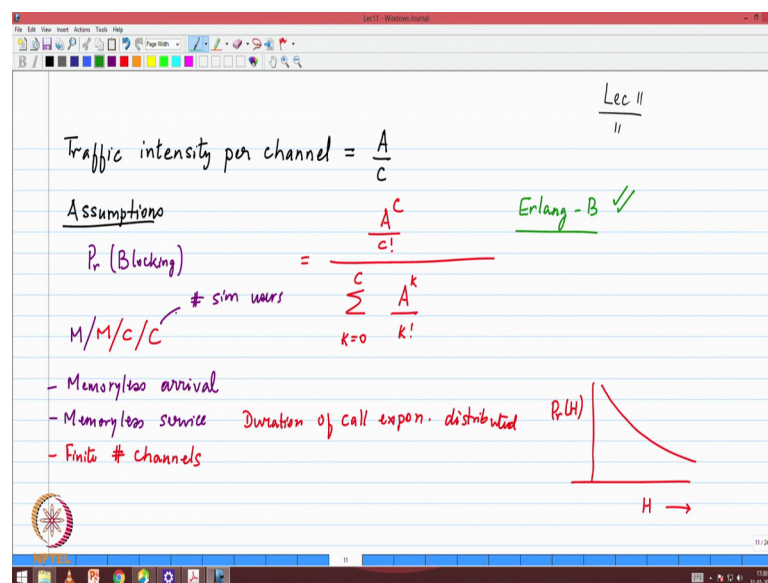 Lec11 - Windows Journal
File Edit View Insert Actions Tools Help
Page Width
B I
Lec 11
11
Traffic intensity per channel = A/C
Assumptions
Erlang-B
Pr (Blocking) = (A^C / C!) / (∑_{K=0}^{C} A^K / K!)
# sim users
M/M/C/C
- Memoryless arrival
- Memoryless service Duration of call expon. distributed
- Finite # channels
Pr(H)
H →
NPTEL
11